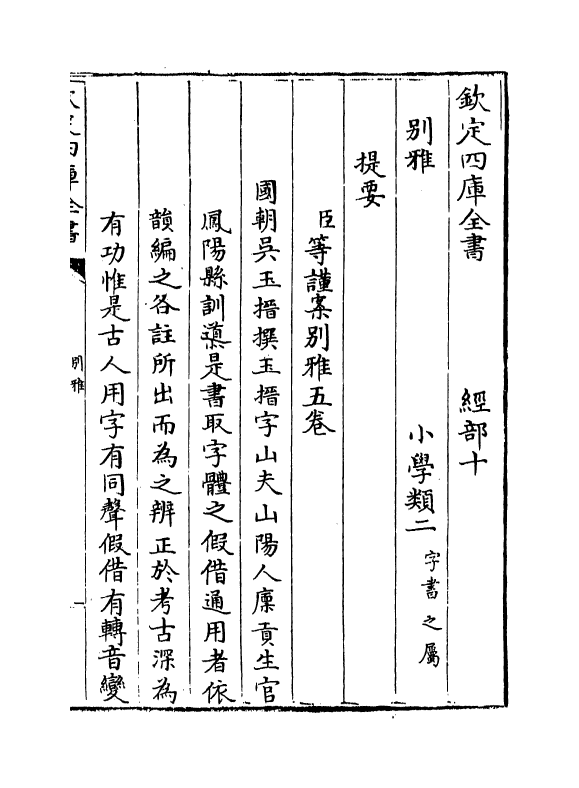 欽定四庫全書 經部十
別雅 小學類二 字書之屬
提要
臣等謹案別雅五卷
國朝吳玉搢撰玉搢字山夫山陽人廩貢生官
鳳陽縣訓導是書取字體之假借通用者依
韻編之各註所出而為之辨正於考古深為
有功惟是古人用字有同聲假借有轉音變
欽定四庫全書
別雅
一